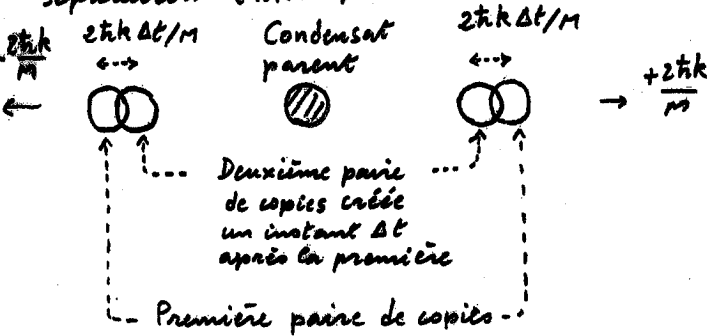 2ħk Δt/M
2ħk Δt/M
2ħk/M
Condensat
parent
+2ħk/M
Deuxième paire
de copies créée
un instant Δt
après la première
Première paire de copies